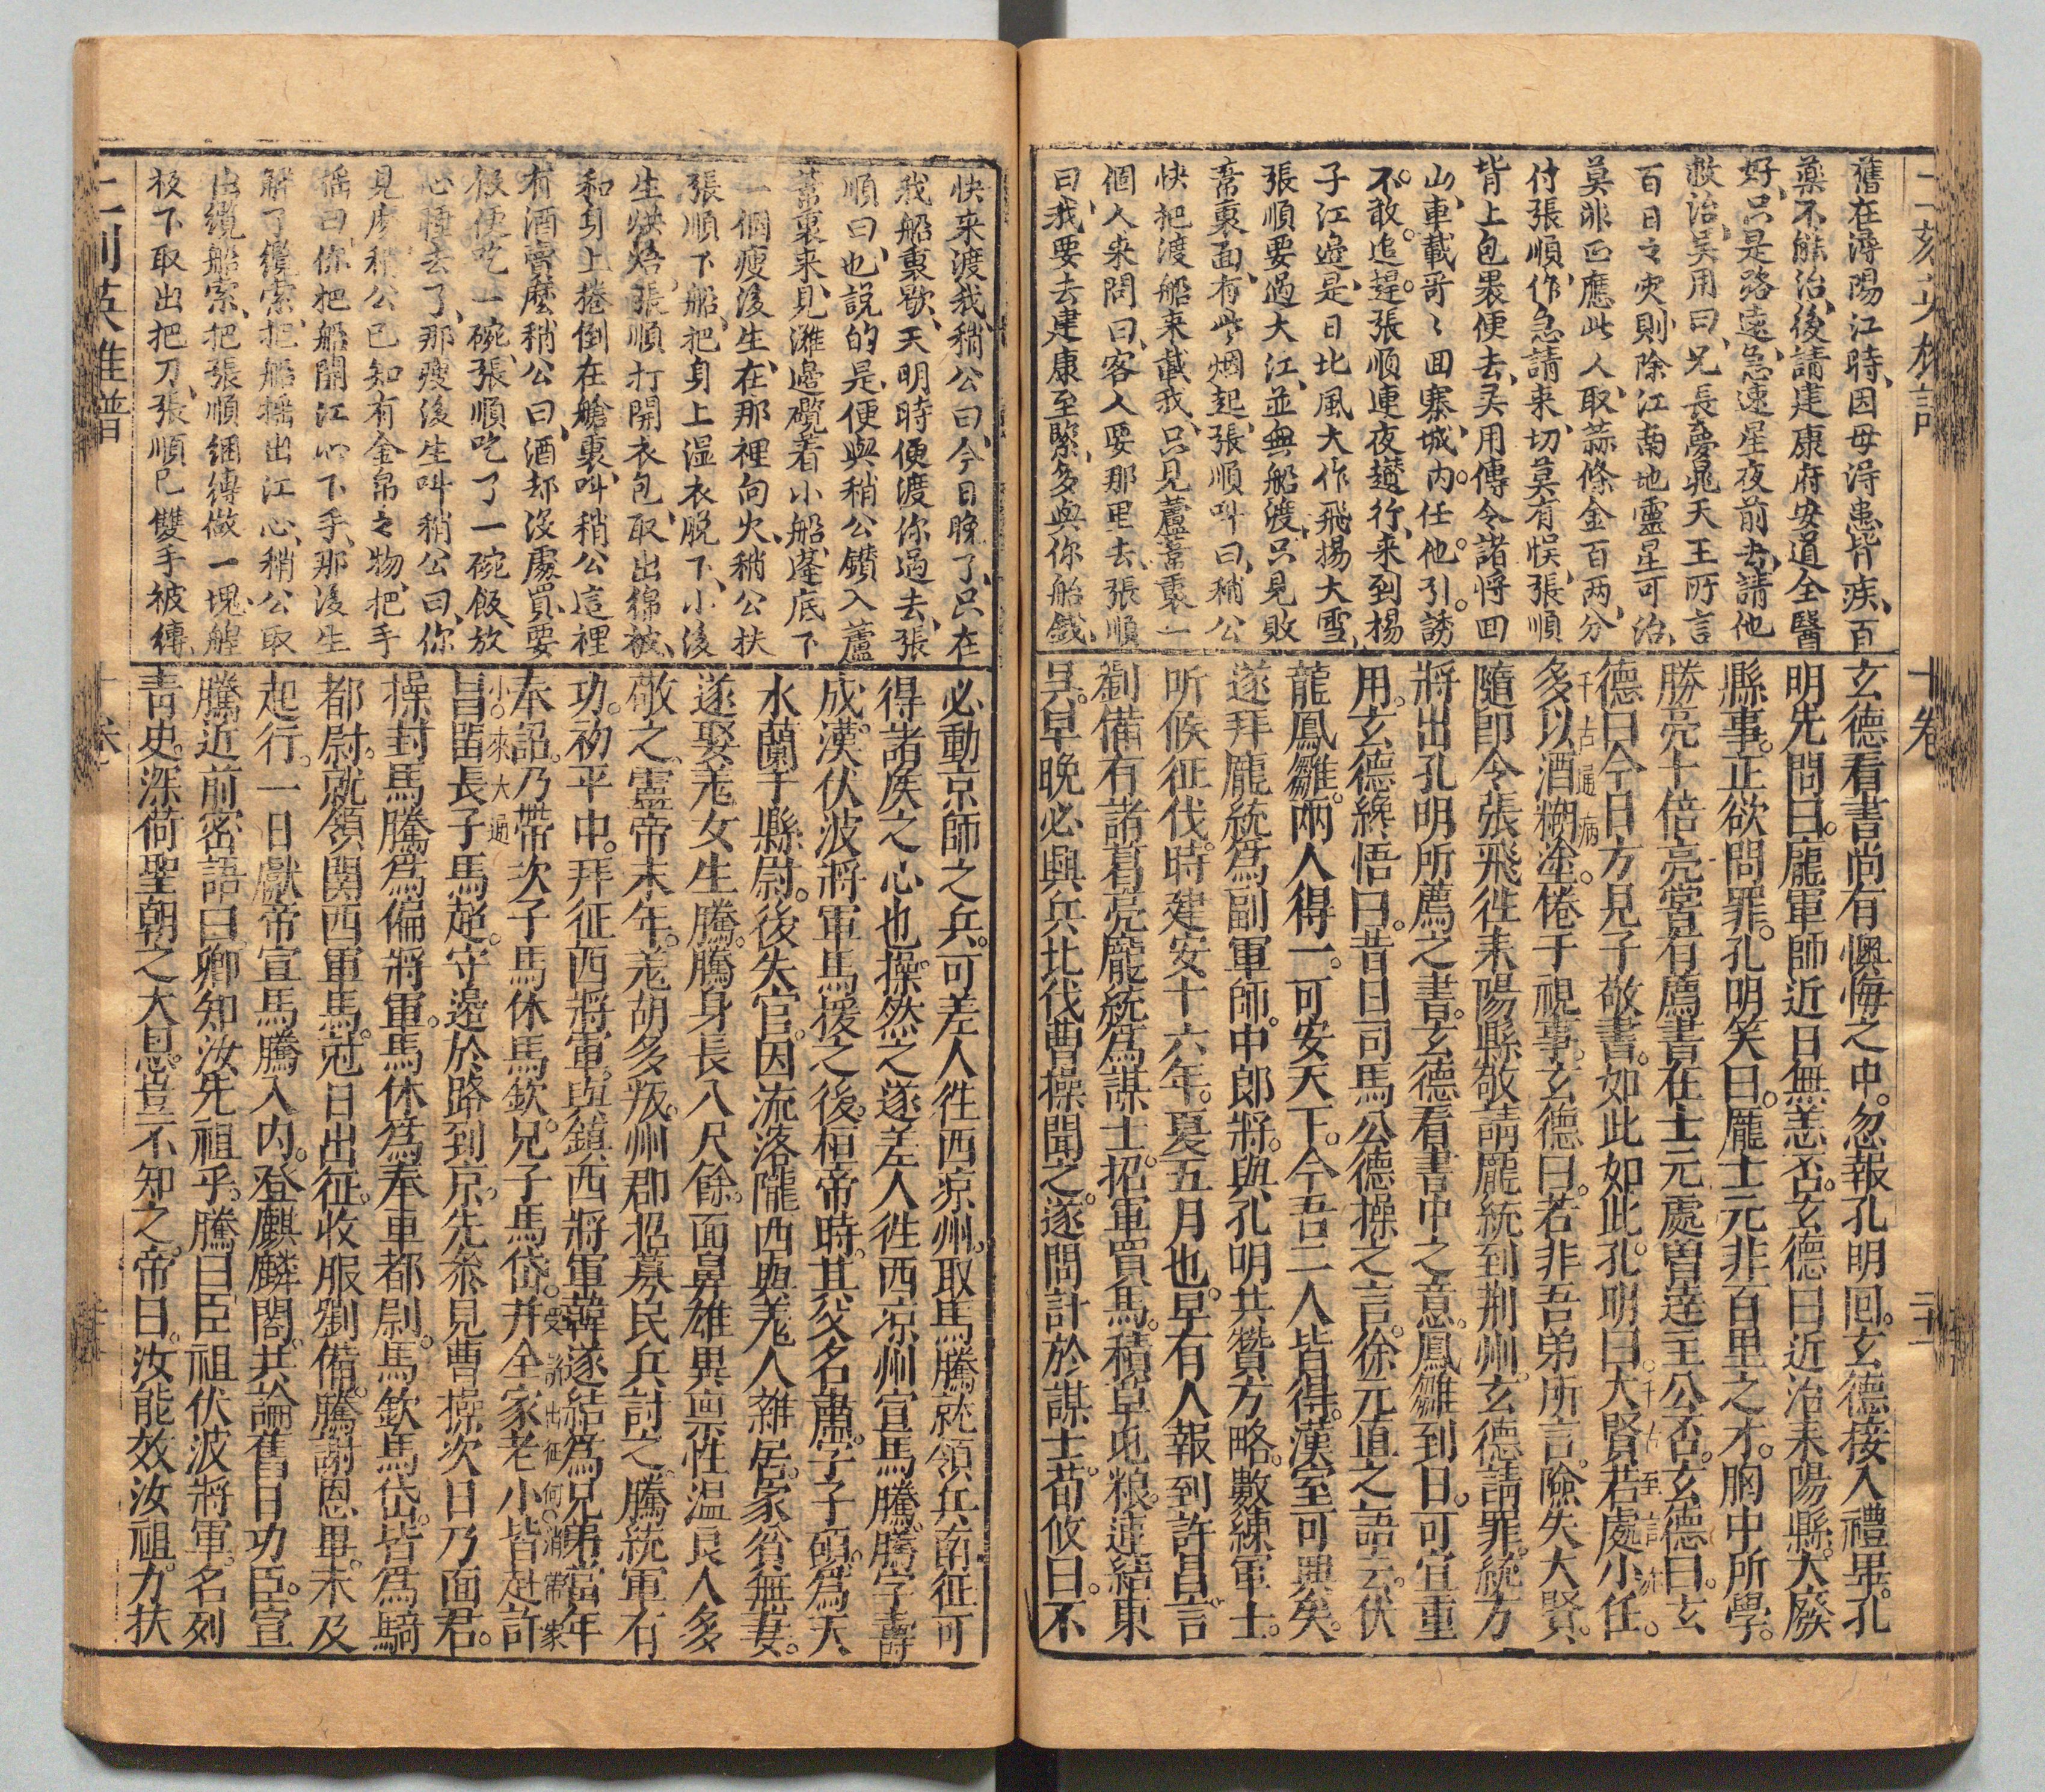 二刻英雄譜
十卷
舊在潯陽江時、因母得患背疾、百
藥不能治、後請建康府安道全醫
好、只是路遠、急速星夜前去、請他
救治、吳用曰、兄長夢晁天王所言
百日之灾、則除江南地靈星可治、
莫非正應此人、取蒜條金百两、分
付張順、作急請来、切莫有悮、張順
背上包裹便去、吴用傳令諸将回
山、車載哥〻回寨、城内任他引誘
不敢追趕、張順連夜趲行、来到揚
子江邉、是日北風大作、飛揚大雪、
張順要過大江、並無船渡、只見敗
葦裏面、有些烟起、張順叫曰、稍公
快把渡船来載我、只見蘆葦裏一
個人来問曰、客人要那里去、張順
曰、我要去建康至緊、多與你船錢、
玄德看書尚有懊悔之中。忽報孔明回。玄德接入禮畢。孔
明先問曰。龐軍師近日無恙否。玄德曰近治耒陽縣。大廢
縣事。正欲問罪。孔明笑曰。龐士元非百里之才。胸中所學。
勝亮十倍。亮嘗有薦書在士元處。曾達主公否。玄德曰。玄
德曰今日方見子敬書。如此如此。孔明曰。大賢若處小任。
千古至言
千古通病
多以酒糊塗。倦于視事。玄德曰。若非吾弟所言。險失大賢、
隨卽令張飛徃耒陽縣敬請龐統到荆州。玄德請罪。統方
將出孔明所薦之書。玄德看書中之意。鳳雛到日。可宣重
用。玄德纔悟曰。昔日司馬公德操之言。徐元直之語云。伏
龍鳳雛。兩人得一。可安天下。今吾二人皆得。漢室可興矣。
遂拜龐統爲副軍師。中郎將。與孔明共贊方略。數練軍士。
听候征伐。時建安十六年。夏五月也。早有人報到許昌。言
劉備有諸葛亮龐統爲謀士。招軍買馬。積草屯粮。連結東
吳。早晚必興兵北伐。曹操聞之。遂問計於謀士。荀攸曰。不
快来渡我、稍公曰、今日晚了、只在
我船裏歇、天明時便渡你過去、張
順曰、也說的是、便與稍公鑽入蘆
葦裏来、見灘邉䌫着小船、蓬底下
一個瘦後生、在那裡向火、稍公扶
張順下船、把身上湿衣脱下、小後
生烘焙、張順打開衣包、取出綿被、
和身上捲倒在艙裏、叫稍公這裡
有酒賣麽、稍公曰、酒却沒處買、要
飯便吃一碗、張順吃了一碗飯、放
心睡去了、那瘦後生叫稍公曰、你
見庅、稍公已知有金帛之物、把手
揺曰、你把船開江心下手、那後生
觧了纜索、把船揺出江心、稍公取
出纜船索、把張順綑縳做一塊、艎
板下取出把刀、張順已雙手被縳、
必動京師之兵。可差人徃西凉州。取馬騰就領兵南征。可
得諸侯之心也。操然之。遂差人徃西凉州宣馬騰。騰字壽
成。漢伏波將軍馬援之後。桓帝時。其父名肅。字子碩。爲天
水蘭干縣尉。後失官。因流落隴西。與羌人雜居。家貧無妻。
遂娶羌女生騰。騰身長八尺餘。面鼻雄異。稟性温良。人多
敬之。靈帝末年。羌胡多叛。州郡招募民兵討之。騰統軍有
功。初平中。拜征西將軍。與鎮西將軍韓遂結爲兄弟。當年
奉詔。乃帶次子馬休馬欽。兄子馬岱。并全家老小皆赴許
受詔出征何消帶家
小來大過
昌。畱長子馬超。守邊於路到京。先叅見曹操。次日乃面君。
操封馬騰爲偏將軍。馬休爲奉車都尉。馬欽馬岱。皆爲騎
都尉。就領関西軍馬。尅日出征。收服劉備。騰謝恩畢。未及
起行。一日獻帝宣馬騰入内。登麒麟閣。共論舊日功臣。宣
騰近前密語曰。卿知汝先祖乎。騰曰臣祖伏波將軍。名列
靑史。深荷聖朝之大恩。豈不知之。帝曰。汝能效汝祖。力扶
二刻英雄譜
十卷